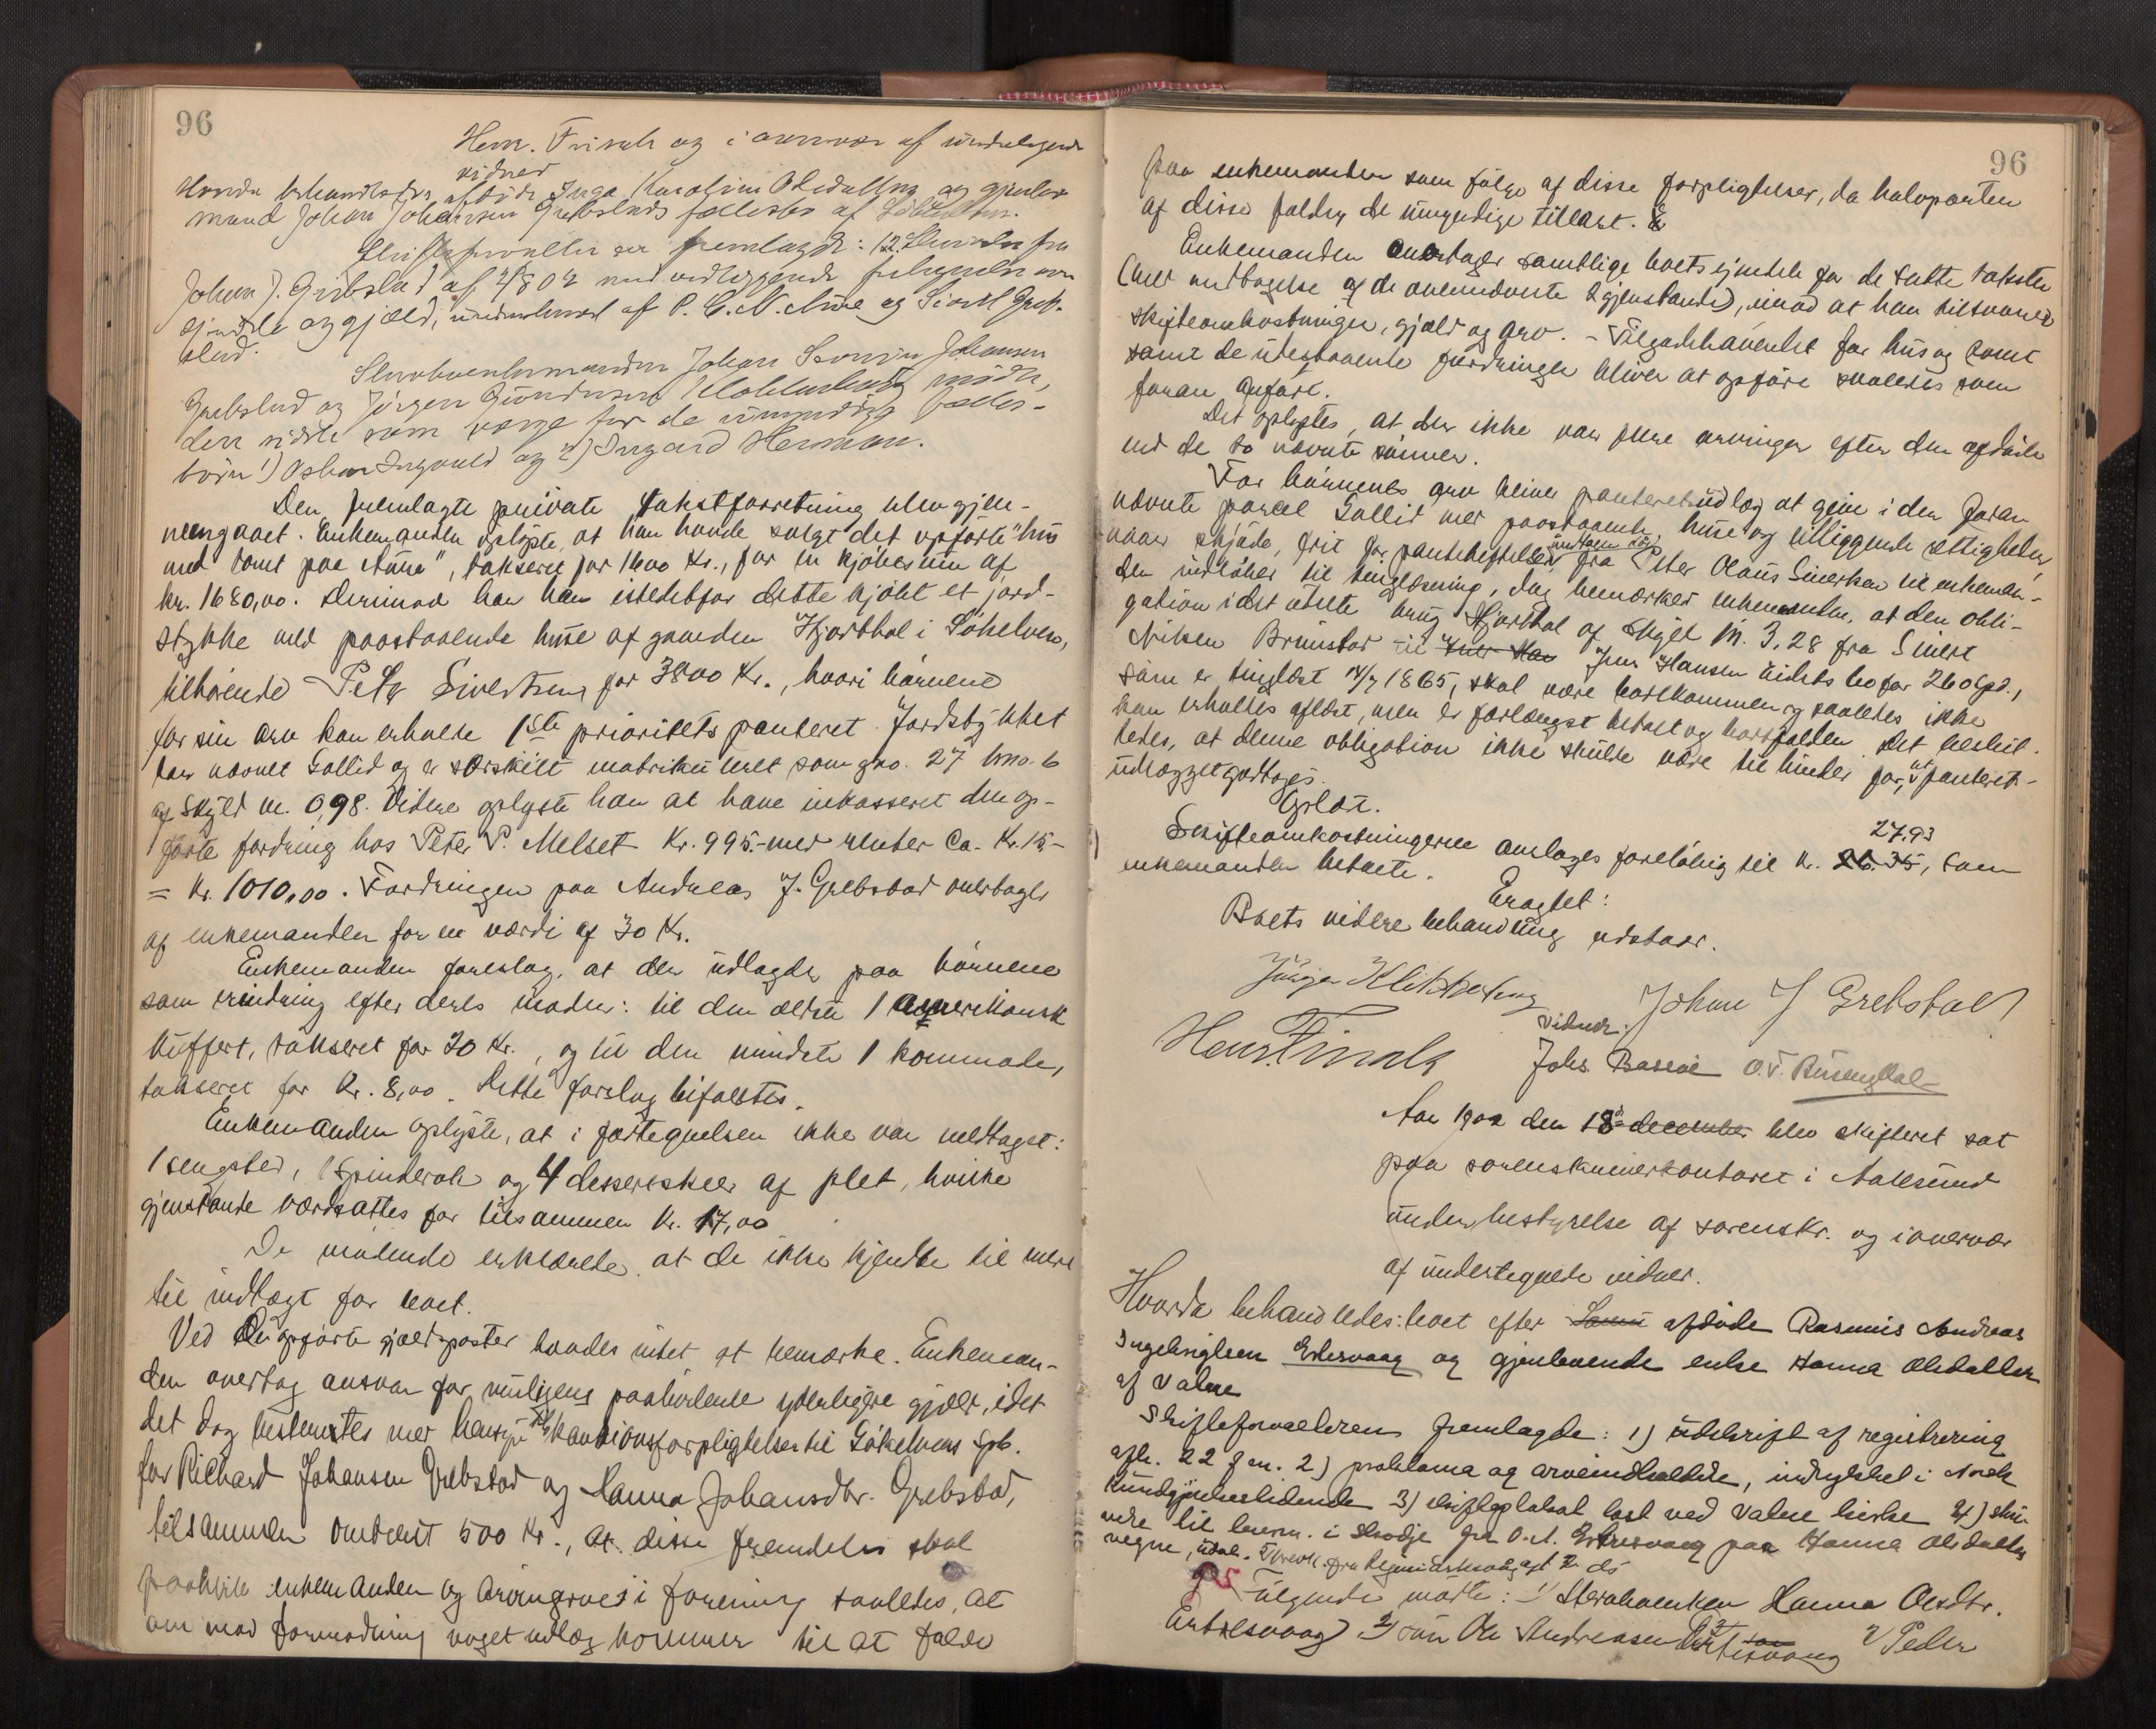 96
Henr. Finsch og i overvær af undertegnede
vidner
Hvorda behandledes afdøde Inga Karoline Olsdatters og gjenlev.
mand Johan Johansen Grebstads fællesbo af Søkelven.
Skifteforvalteren fremlagde: 1) 2 Skrivelse fra
Johan J. Grebstad af 4/8 02 med vedliggende fortegnelse over
ejendele og gjæld, underskrevet af P. E. N. Aure og Sivert Greb-
stad.
Stervboenkemanden Johan Severin Johansen
Grebstad og Jørgen Gundersen Klokkerhaug mødte,
den sidste som værge for de umyndige fælles-
børn 1) Oskar Ingvald og 2) Ingvard Herman.
Den fremlagte private takstforretning blev gjen-
nemgaaet. Enkemanden oplyste, at han havde solgt det opførte "hus
med tomt paa Aure", takseret for 1600 Kr., for en kjøbesum af
kr. 1680,00. Derimod har han istedetfor dette kjøbt et jord-
stykke med paastaaende huse af gaarden Hjorthol i Søkelven,
tilhørende Peter Sivertsen for 3800 Kr., hvori børnene
for sin arv kan erholde 1ste prioritets panteret. Jordstykket
har navnet Sollid og er særskilt matrikuleret som gno. 27 bno. 6
af Skyld m. 0,98. Videre oplyste han at have inkasseret den op-
førte fordring hos Peter P. Melset Kr. 995.- med renter ca. Kr. 15,-
= Kr. 1010,00. Fordringen paa Andreas J. Grebstad overtages
af enkemanden for en værdi af 30 Kr.
Enkemanden foreslog, at der udlagdes paa børnene
som erindring efter deres moder: til den ældste 1 amerikansk
kuffert, takseret for 20 Kr., og til den mindste 1 kommode,
takseret for Kr. 8,00. Dette forslag bifaldtes.
Enkemanden oplyste, at i fortegnelsen ikke var medtaget:
1 sengsted, 1 spinderok og 4 dessertskeer af plet, hvilke
gjenstande værdsattes for tilsammen Kr. 17,00
De mødende erklærede, at de ikke kjendte til mere
til indtægt for boet.
Ved de opførte gjældsposter havdes intet at bemærke. Enkeman-
den overtog ansvar for muligens paahvilende yderligere gjæld, idet
det dog bestemtes med hensyn til kautionsforpligtelser til Søkelvens Spb.
for Richard Johansen Grebstad og Hanna Johansdtr. Grebstad,
tilsammen omtrent 500 Kr., at disse fremdeles skal
paahvile enkemanden og arvingerne i forening saaledes, at
om mod formodning noget udlæg kommer til at falde
96
paa enkemanden som følge af disse forpligtelser, da halvparten
af disse falder de umyndige tillast.
Enkemanden overtager samtlige boets ejendele for de satte takster
(med undtagelse af de ovennævnte 2 gjenstande), imod at han tilsvarer
skifteomkostninger, gjæld og arv. - Tilgodehavendet for hus og tomt
samt de udestaaende fordringer bliver at opføre saaledes som
foran anført.
Det oplystes, at der ikke var flere arvinger efter den afdøde
end de to nævnte sønner.
For børnenes arv bliver panteretsudlæg at give i den foran
nævnte parcel Sollid med paastaaende huse og tilliggende rettigheder,
naar skjøde, frit for pantehæftelser fra Peter Olaus Sivertsen til enkeman-
den indløber til tinglæsning, dog bemærker enkemanden, at den obli-
gation i det udelte brug Hjorthol af Skyld m. 3,28 fra Sivert
Nilsen Brunstad til Jens Hansen Eidets bo for 260 Spd.,
som er tinglæst 14/7 1865, skal være bortkommen og saaledes ikke
kan erholdes aflæst, men er forlængst betalt og bortfalden. Det beslut-
tedes, at denne obligation ikke skulde være til hinder for, at panterets-
udlægget godtages.
Oplæst.
Skifteomkostningerne ansloges foreløbig til Kr. 27,93, som
enkemanden betalte.
Eragtet:
Boets videre behandling udstaar.
Jørgen Klokkerhaug Johan J Grebstad
Henr. Finsch
Vidner:
Johs. Bassøe O. V. Rusengdal
Aar 1902 den 18de december blev skifteret sat
paa sorenskriverkontoret i Aalesund
under bestyrelse af sorenskr. og i overvær
af undertegnede vidner.
Hvorda behandledes: boet efter afdøde Rasmus Andreas
Ingebrigtsen Ertesvaag og gjenlevende enke Hanna Olsdatter
af Vatne
Skifteforvalteren fremlagde: 1) udskrift af registrering
afh. 22 f. m. 2) proklama og arveindkaldelse, indrykket i Norsk
Kundgjørelsestidende 3) skifteplakat læst ved Vatne kirke 4) skri-
velse til lensm. i Skodje fra O. A. Ertesvaag paa Hanna Olsdatters
vegne
Følgende mødte: 1) Stervboenken Hanna Olsdtr.
Ertesvaag 2) søn Ole Andreasen Ertesvaag Peder